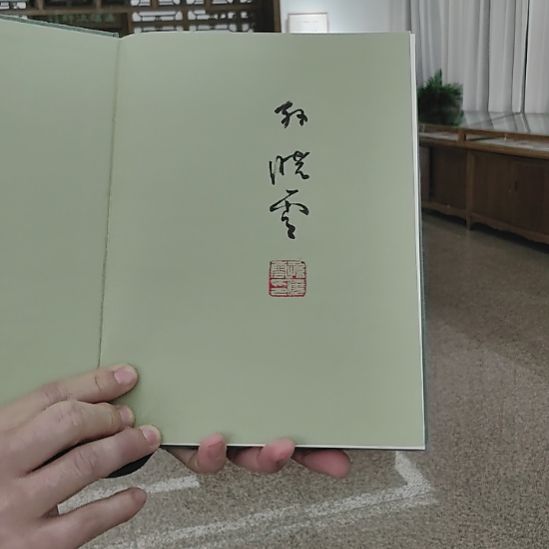 孙晓云